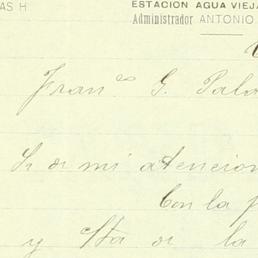 AS H
ESTACION AGUA VIEJA
Administrador ANTONIO
Fran.co G. Pala
Sr de mi atencion
Con la p
y Sta de la